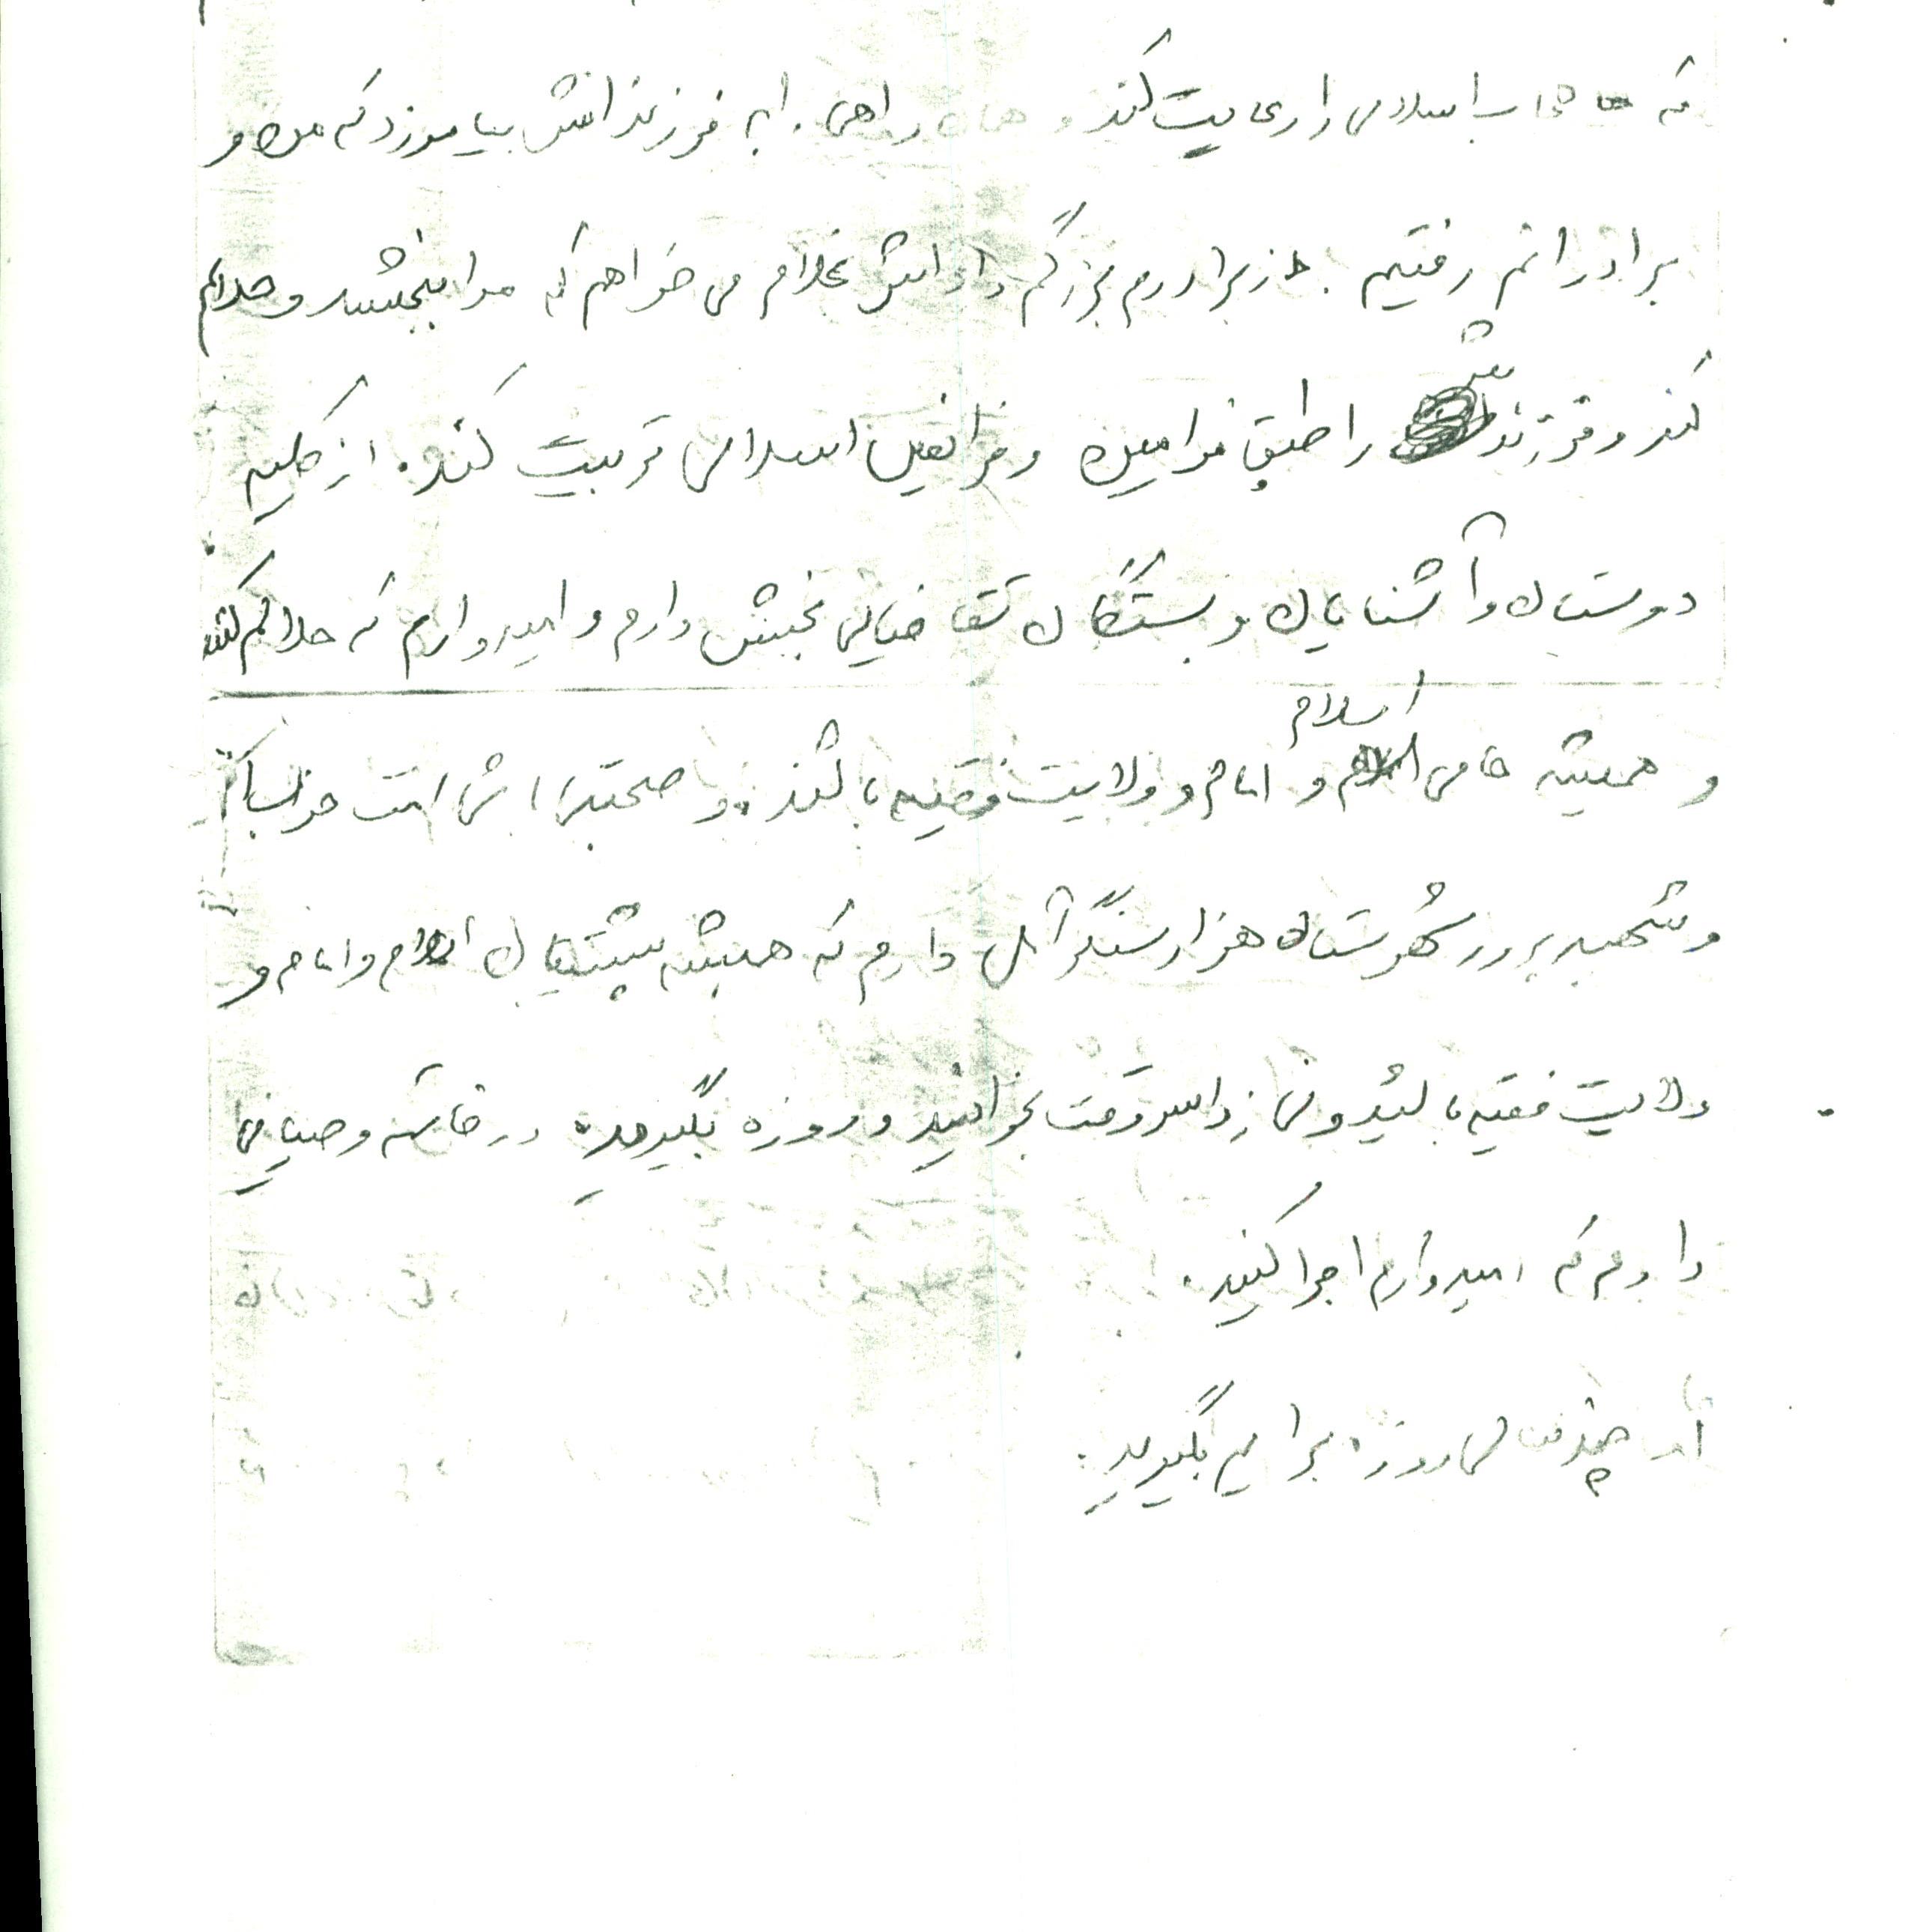 که حجاب اسلامی را رعایت کند و همان راهی را به فرزندانش بیاموزد که من و
برادرانم رفتیم. از برادرم بزرگم داداش غلام می خواهم که مرا ببخشد و حلالم
کند و فرزندش را طبق فرامین و فرائض اسلامی تربیت کند. از کلیه
دوستان و آشنایان و بستگان تقاضای بخشش دارم و امیدوارم که حلالم کنند
و همیشه حامی اسلام و امام و ولایت فقیه باشند. و صحبتی با شما امت حزب الله
و شهید پرور شهرستان هزار سنگر آمل دارم که همیشه پشتیبان اسلام و امام و
ولایت فقیه باشید و نماز را سر وقت بخوانید و روزه بگیرید. در خاتمه وصیتهایی
دارم که امیدوارم اجرا کنید.
چند ماهی روزه برایم بگیرید.